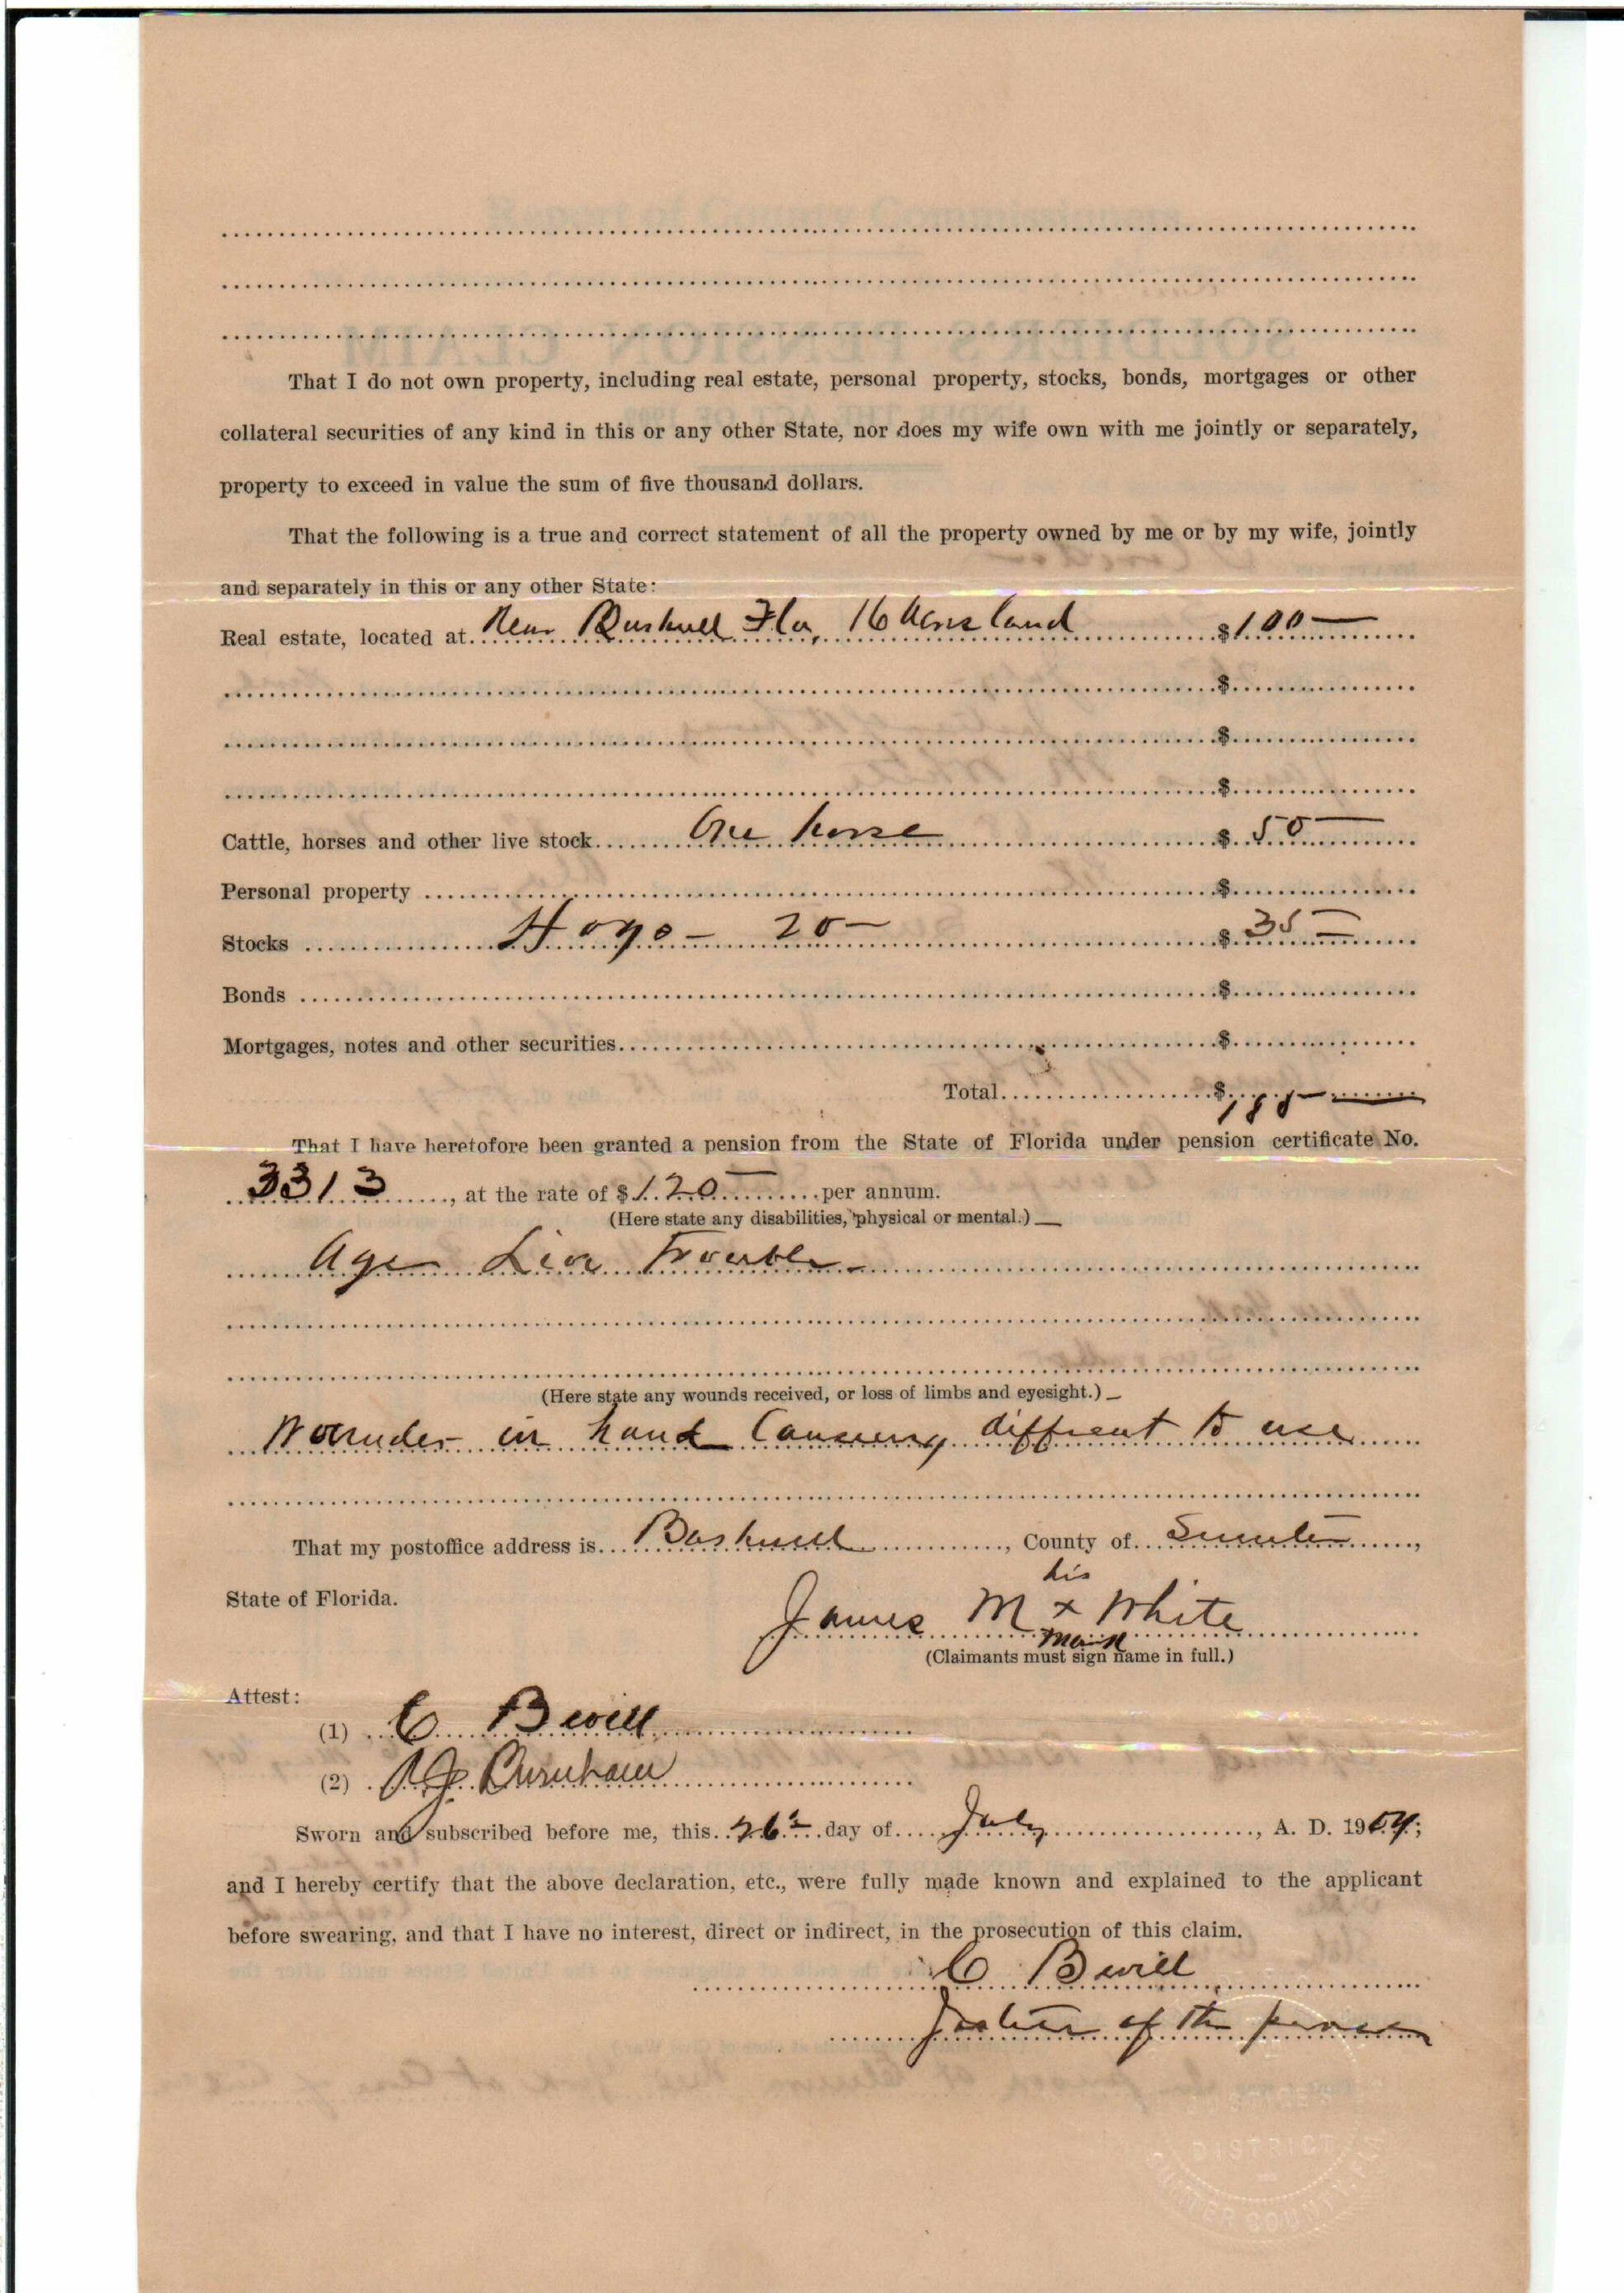 That I do not own property, including real estate, personal property, stocks, bonds, mortgages or other
collateral securities of any kind in this or any other State, nor does my wife own with me jointly or separately,
property to exceed in value the sum of five thousand dollars.
That the following is a true and correct statement of all the property owned by me or by my wife, jointly
and separately in this or any other State:
Real estate, located at Near Bushnell Fla, 16 Acres land $100—
$
$
$
Cattle, horses and other live stock One horse $50—
Personal property $
Stocks Hogs— 20— $35—
Bonds $
Mortgages, notes and other securities $
Total $
That I have heretofore been granted a pension from the State of Florida under pension certificate No.
3313, at the rate of $120— per annum.
(Here state any disabilities, physical or mental.)—
Age Liver Trouble—
(Here state any wounds received, or loss of limbs and eyesight.)—
Woundes in hand Causing to use
That my postoffice address is Bushnell, County of Sumter,
his
State of Florida.
James M x White
mark
(Claimants must sign name in full.)
Attest:
(1) C Bwill
(2) Burnham
Sworn and subscribed before me, this 26 day of July, A. D. 1909;
and I hereby certify that the above declaration, etc., were fully made known and explained to the applicant
before swearing, and that I have no interest, direct or indirect, in the prosecution of this claim.
C Bwill
Justice of the peace
DISTRICT
SUMTER COUNTY, FLA.